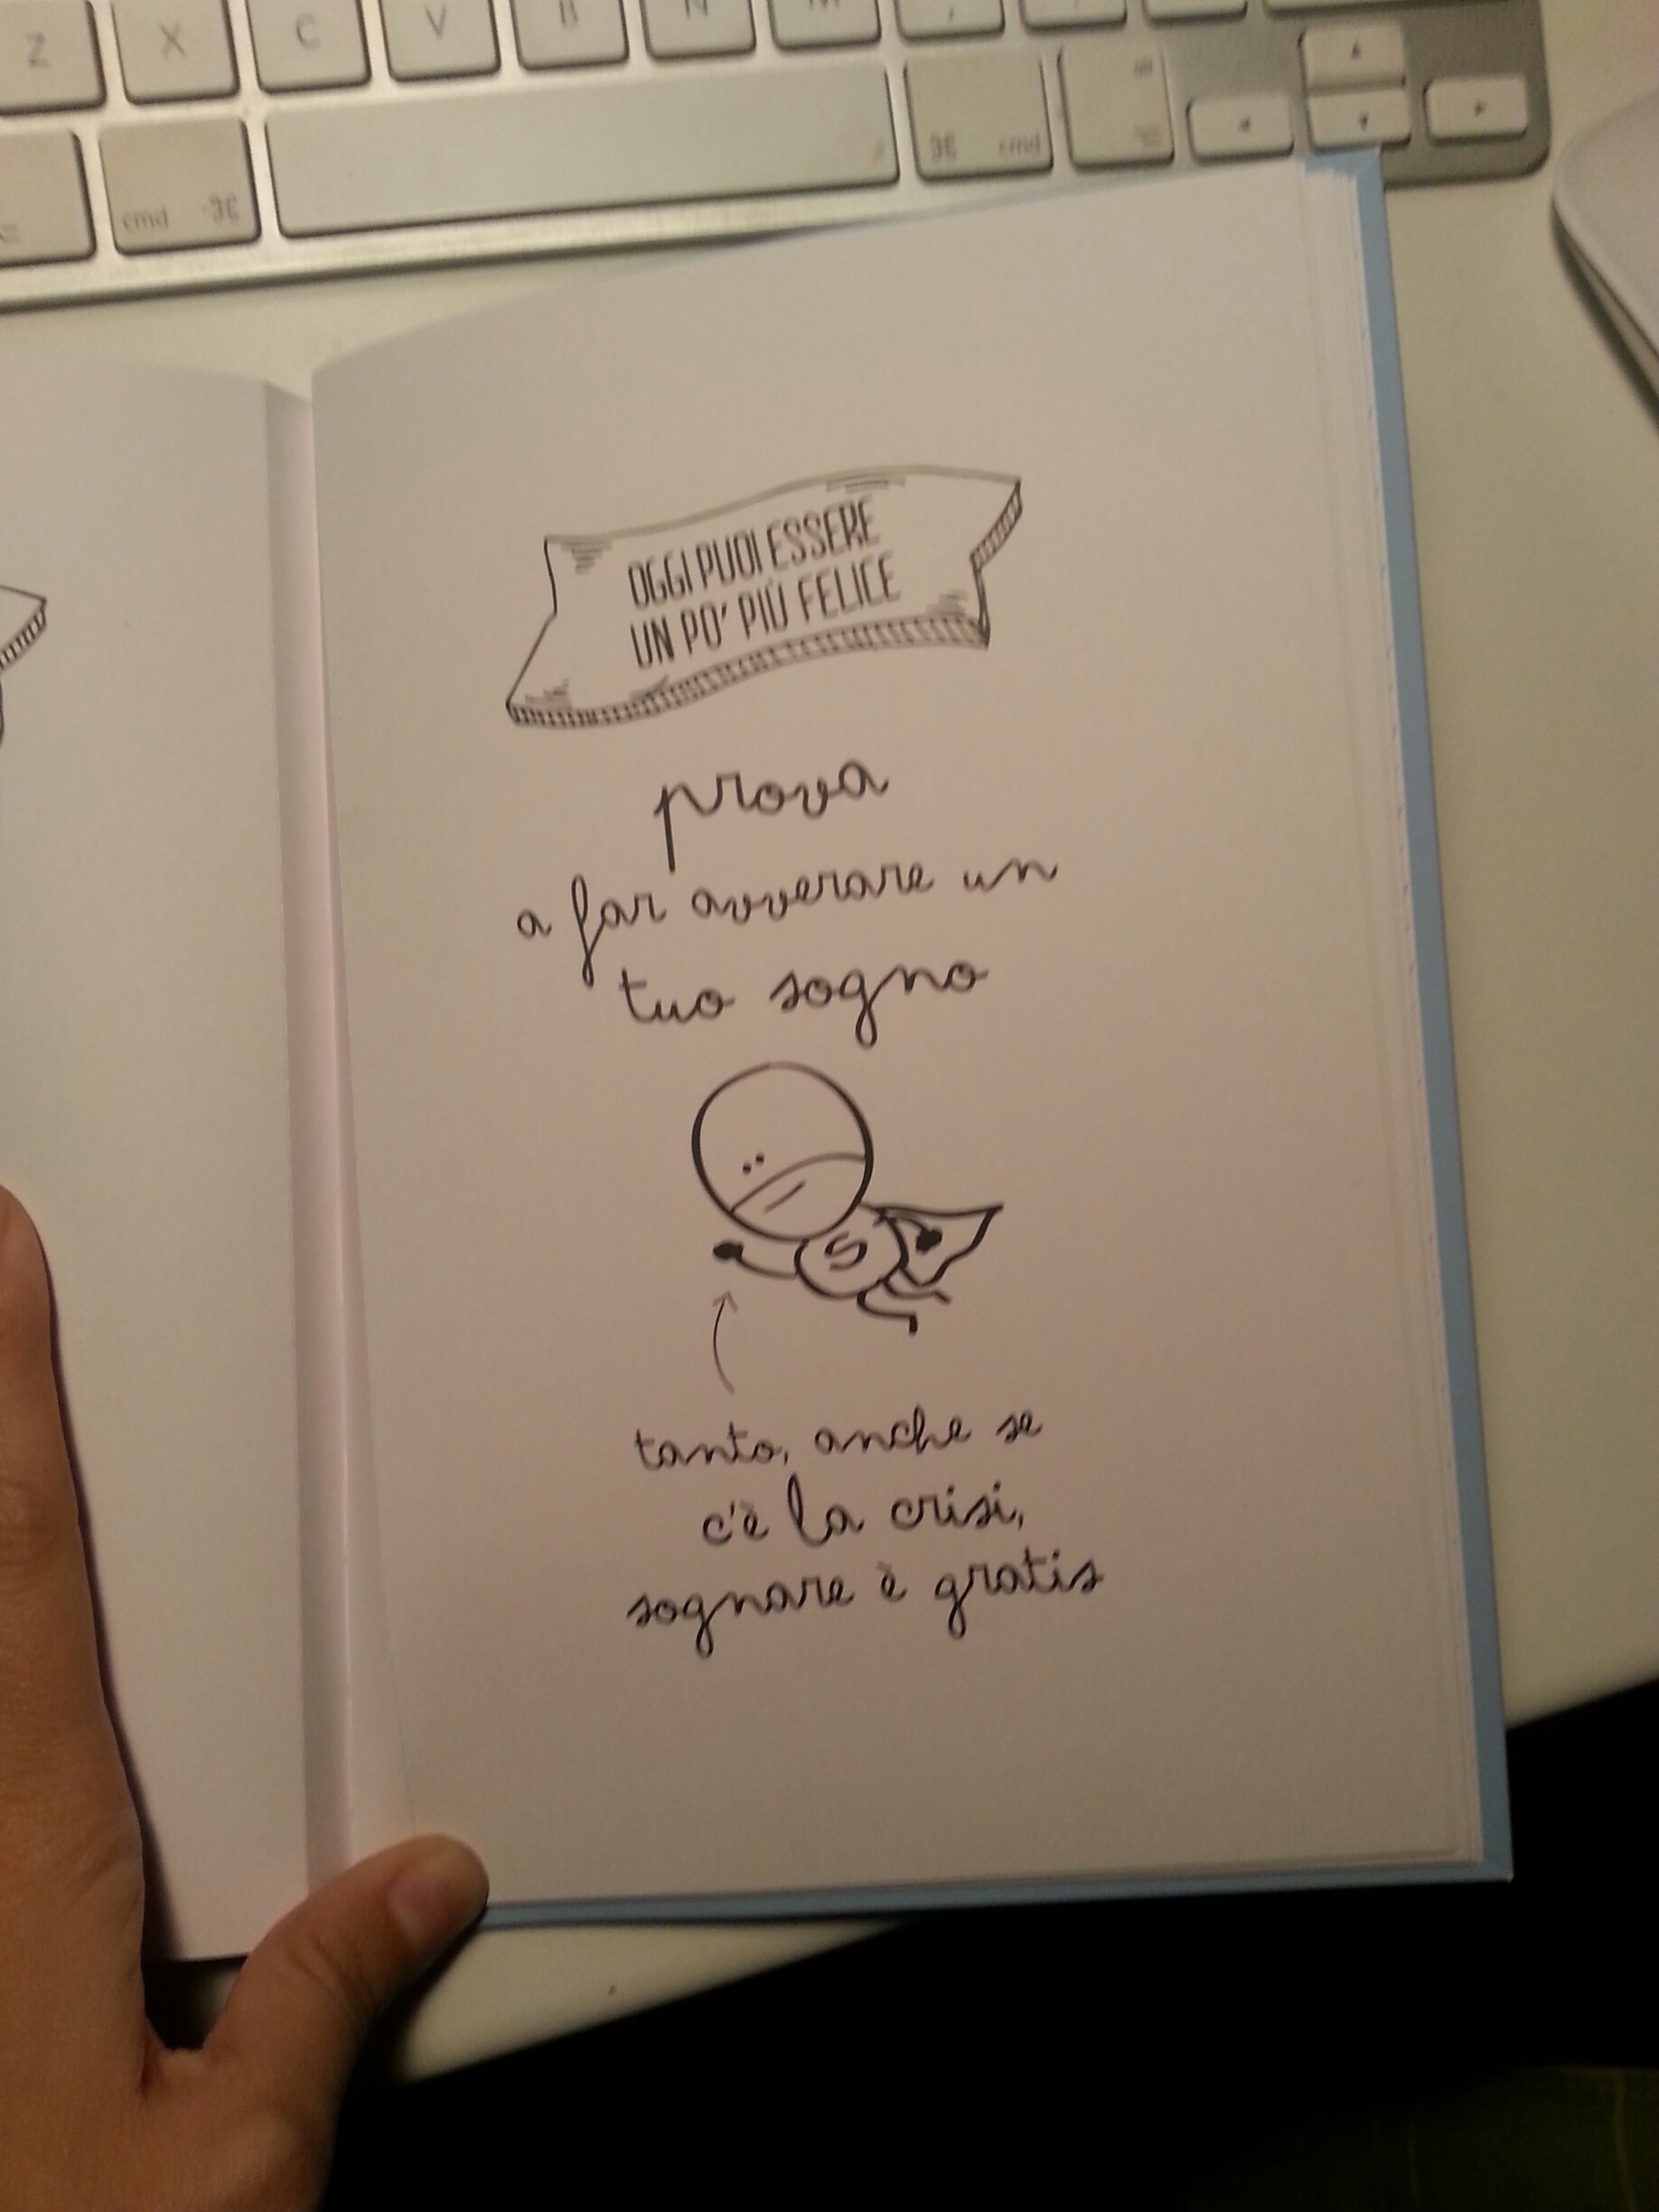 Z X C V B N M
cmd ⌘
⌘ cmd
OGGI PUOI ESSERE
UN PO' PIÙ FELICE
prova
a far avverare un
tuo sogno
S
tanto, anche se
c'è la crisi,
sognare è gratis